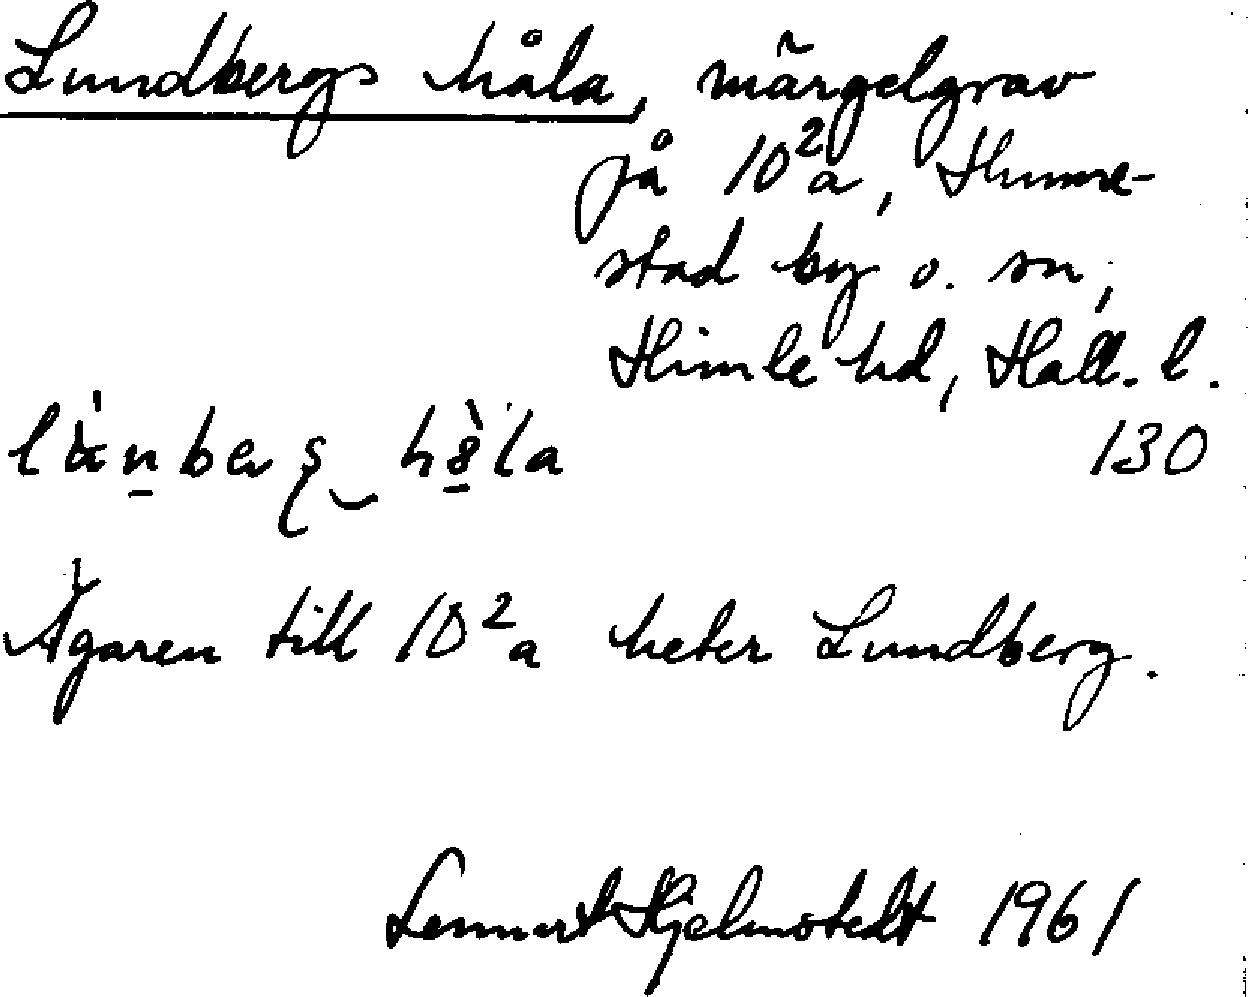 Lundbergs håla, märgelgrav
på 10²a, Hunne-
stad by o. sn,
Himle hd, Hall. l.
130
Ägaren till 10²a heter Lundberg.
Lennart Hjelmstedt 1961